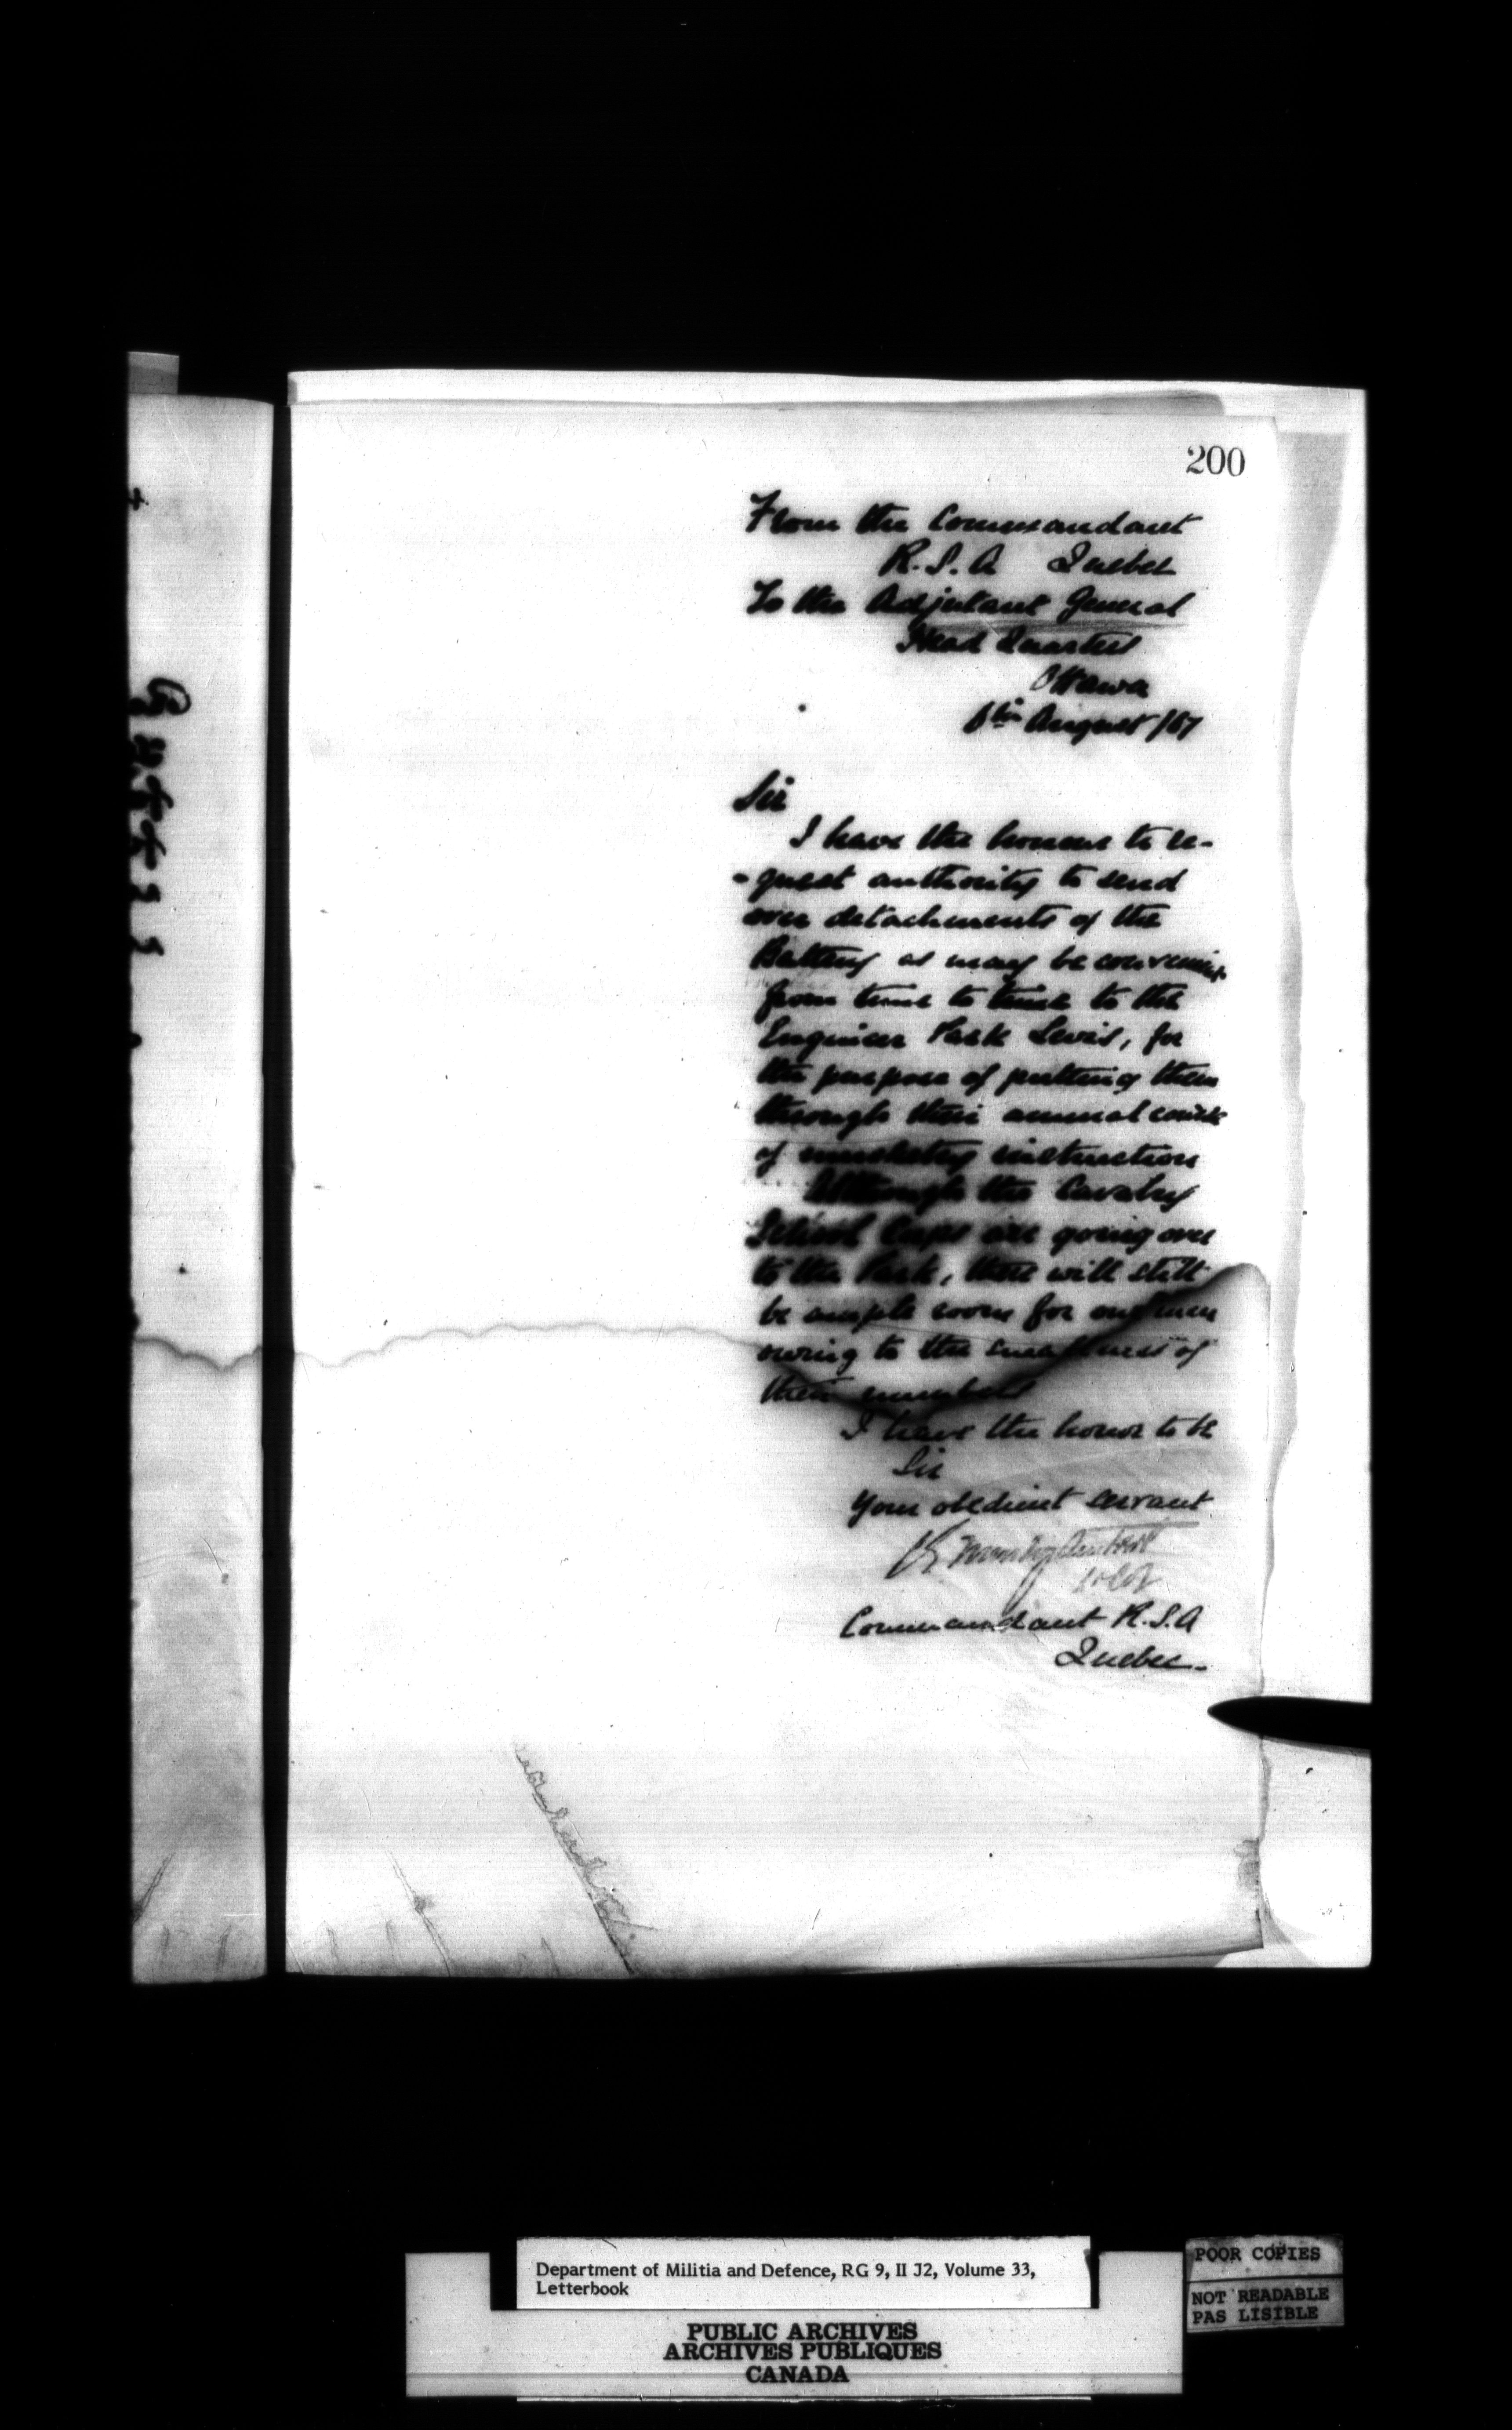 200
From the Commandant
R. S. A Quebec
To the Adjutant General
Head Quarters
Ottawa
August
Sir
I have the honour to re-
-quest authority to send
over detachments of the
Battery as may be convenient
from time to time to the
Engineer Park Levis, for
the purpose of putting them
through their annual course
of musketry instruction
Although the Cavalry
School Corps are going over
to the Park, there will still
be ample room for our men
owing to the smallness of
their numbers
I have the honor to be
Sir
Your obedient servant
Commandant R.S.A
Quebec.
Department of Militia and Defence, RG 9, II J2, Volume 33,
Letterbook
PUBLIC ARCHIVES
ARCHIVES PUBLIQUES
CANADA
POOR COPIES
NOT READABLE
PAS LISIBLE